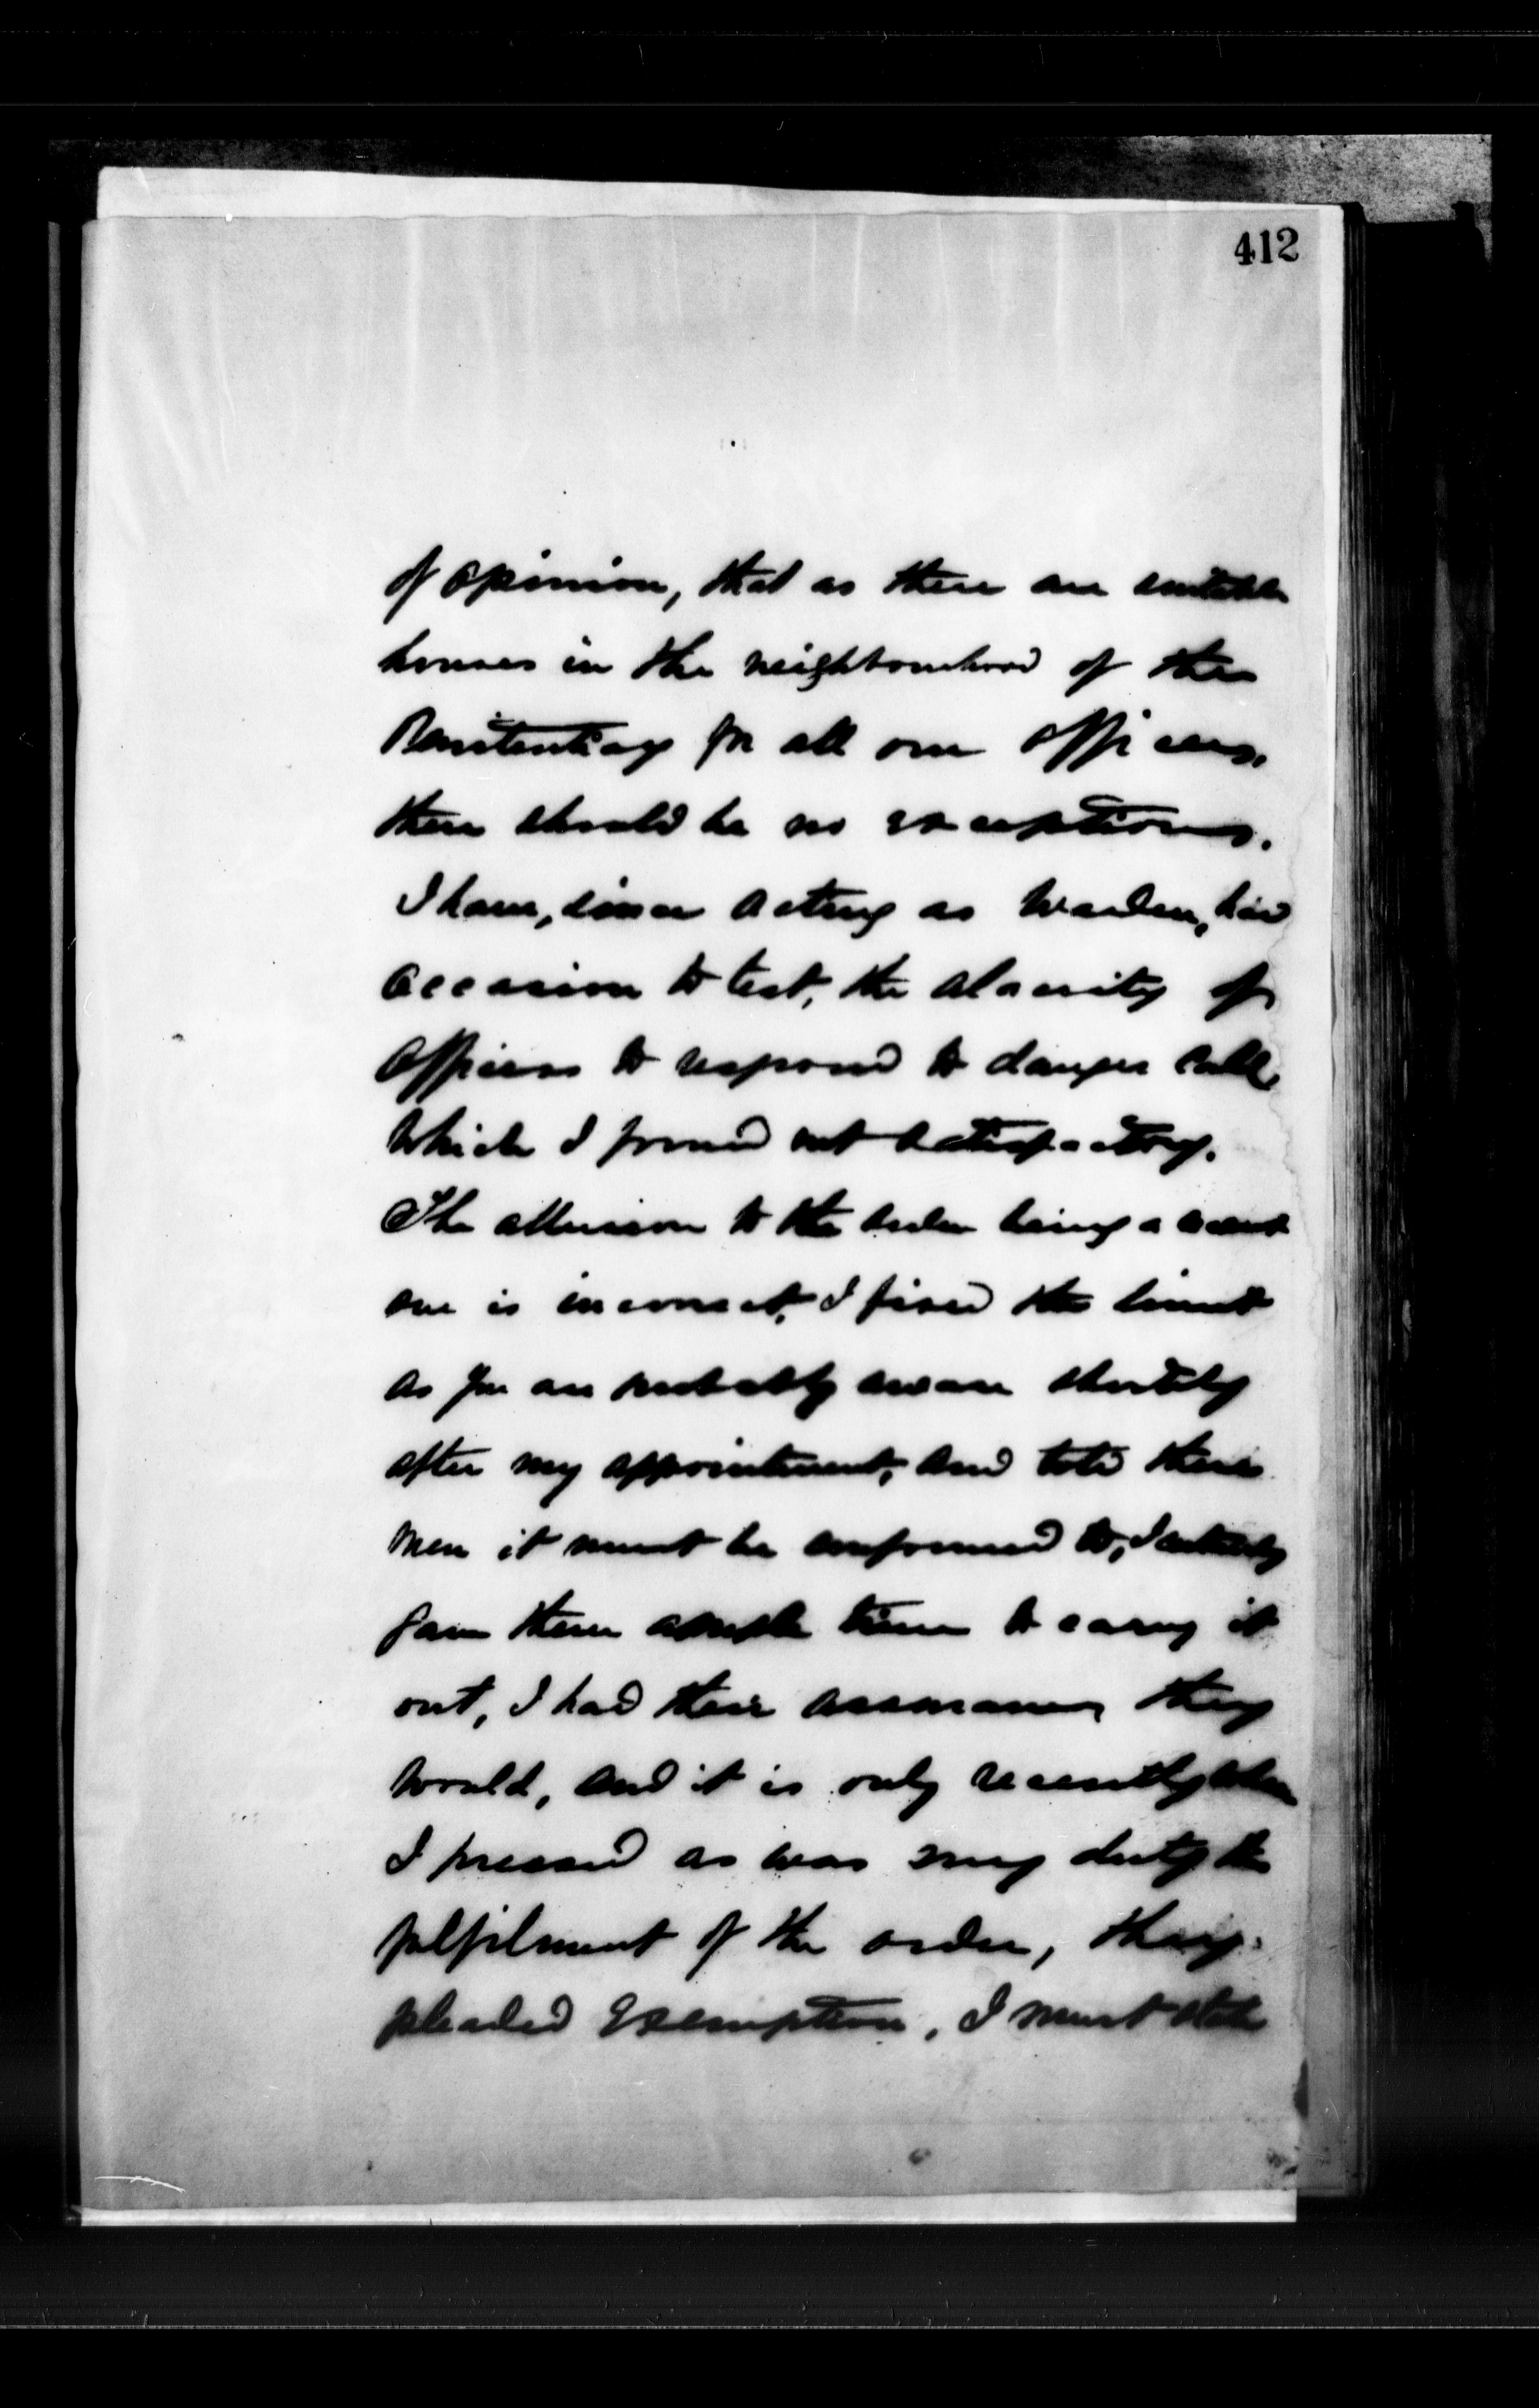 412
of opinion, that as there are suitable
houses in the neighbourhood of the
Penitentiary for all our officers,
there should be no exceptions.
I have, since acting as Warden, had
occasion to test, the alacrity of
officers to respond to danger call,
which I found not satisfactory.
The allusion to the order being a recent
one is incorrect, I fixed the limit
as you are probably aware shortly
after my appointment, and told these
men it must be conformed to, I
gave them ample time to carry it
out, I had their assurance, they
would, and it is only recently when
I pressed as was my duty the
fulfilment of the order, they
pleaded exemption, I must state